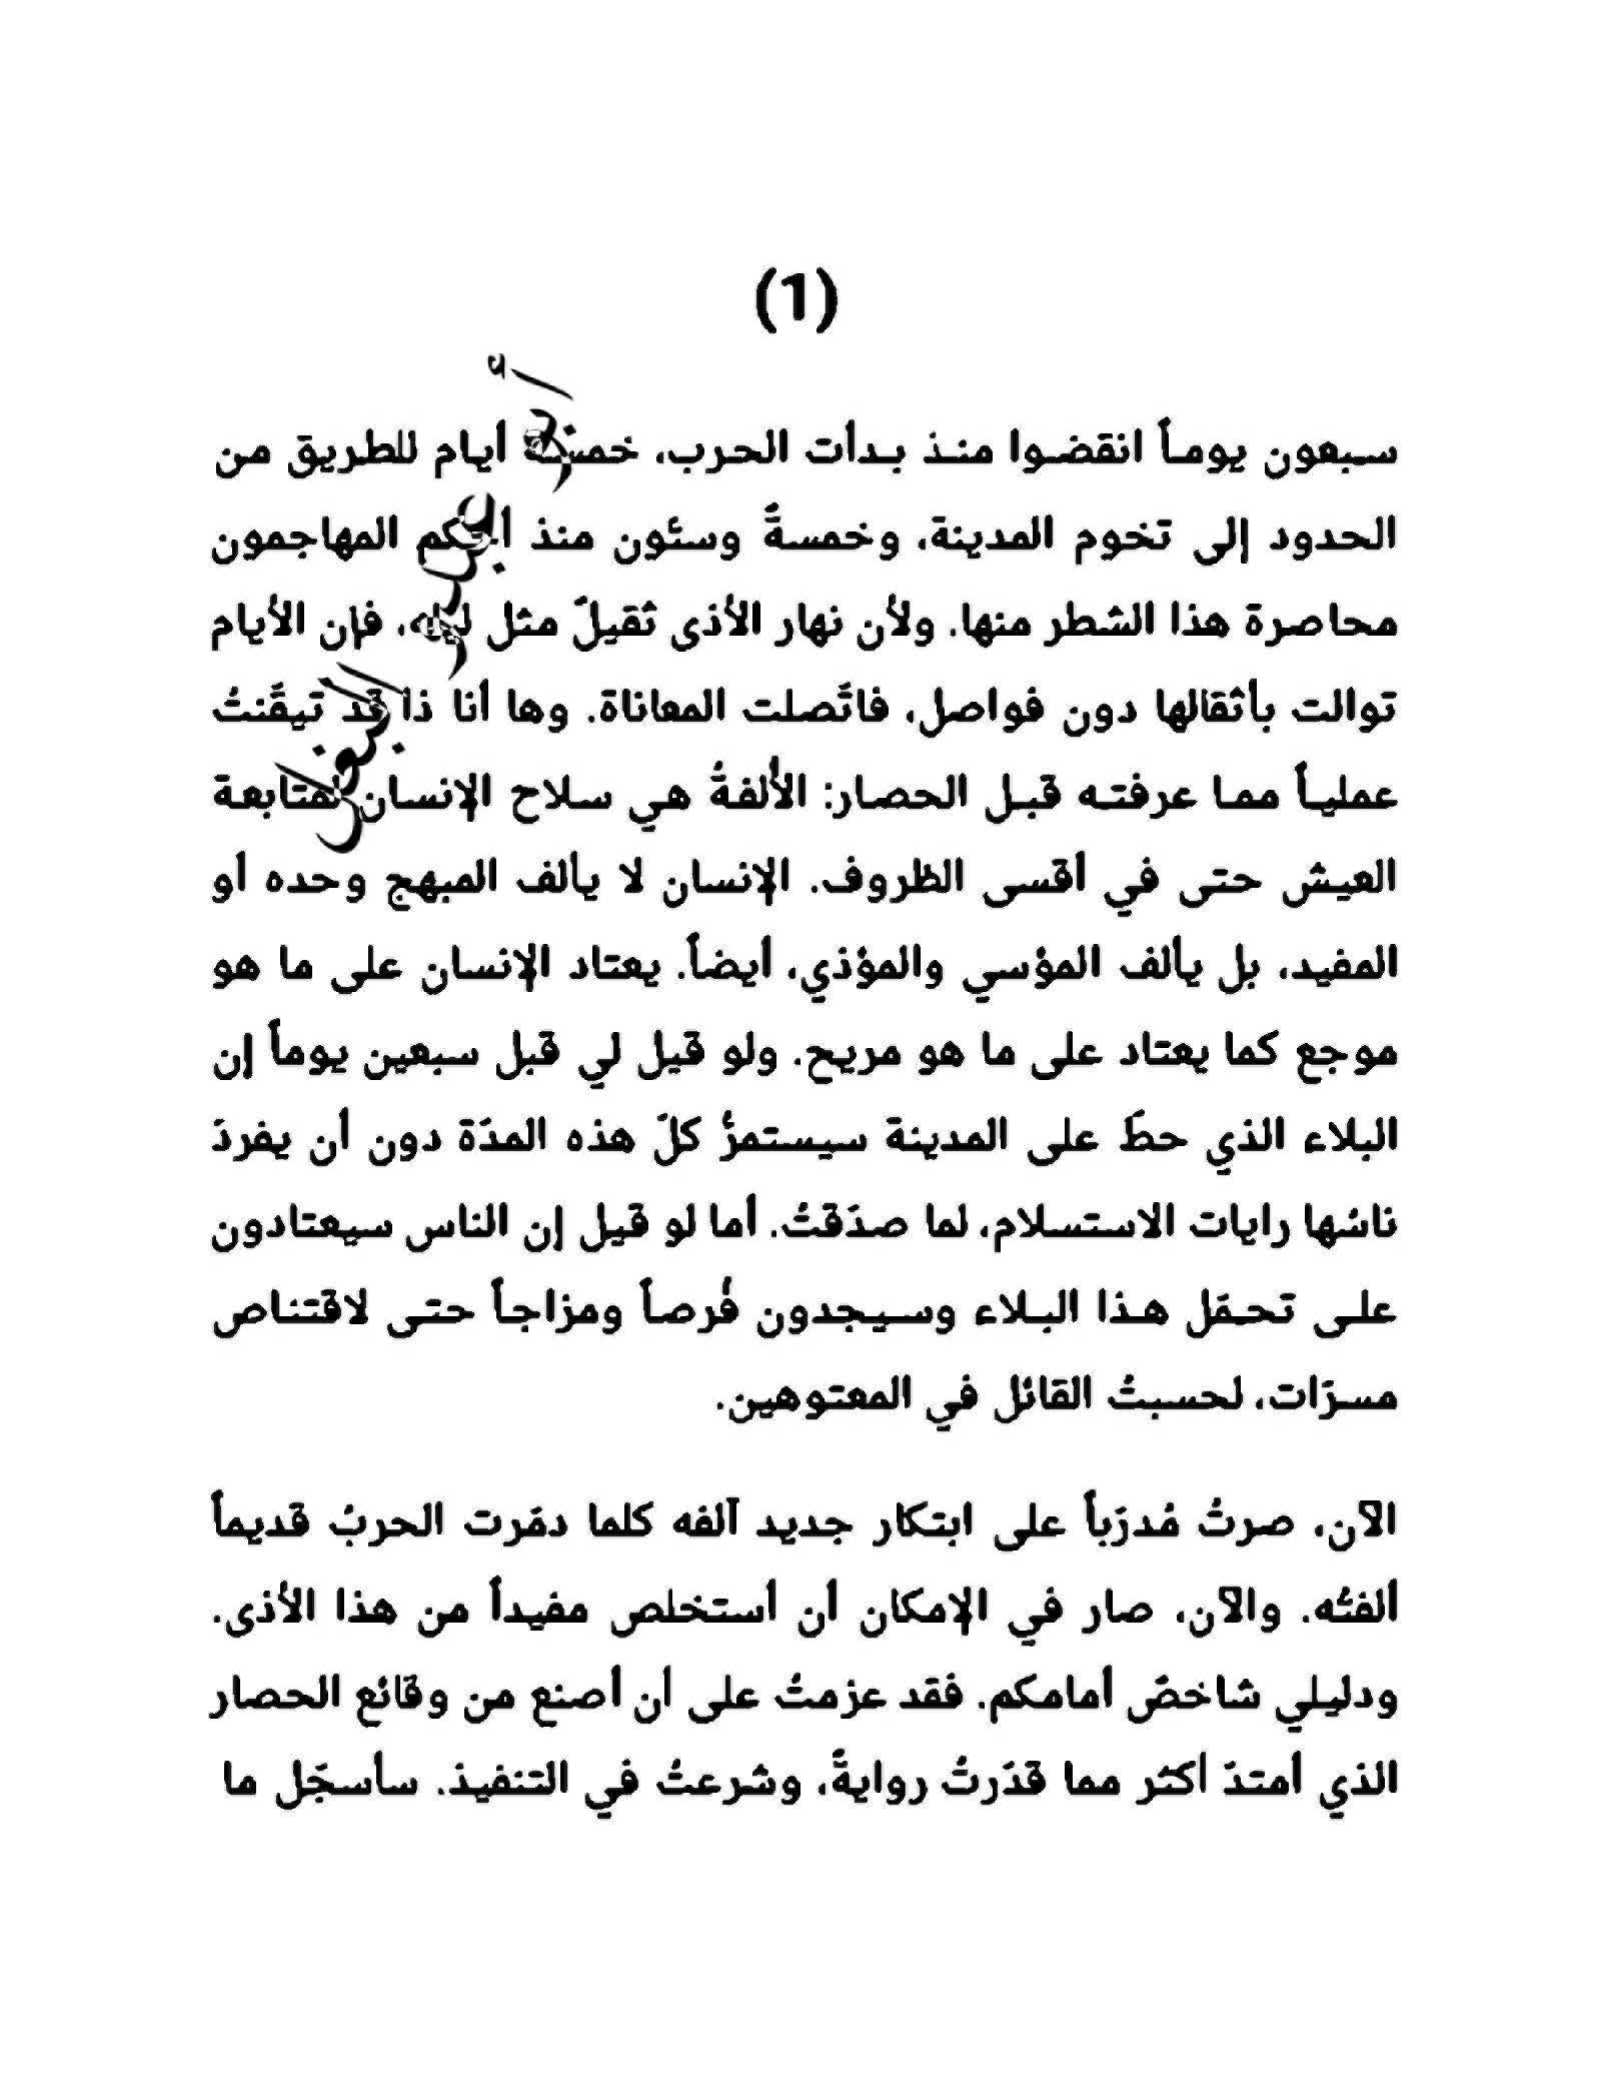 (1)
سبعون يوماً انقضوا منذ بدأت الحرب، خمسة أيام للطريق من
الحدود إلى تخوم المدينة، وخمسةً وستون منذ أحكم المهاجمون
محاصرة هذا الشطر منها. ولأن نهار الأذى ثقيلٌ مثل ليله، فإن الأيام
توالت بأثقالها دون فواصل، فاتَّصلت المعاناة. وها أنا ذا قد تيقَّنتُ
عملياً مما عرفته قبل الحصار: الأُلفةُ هي سلاح الإنسان لمتابعة
العيش حتى في أقسى الظروف. الإنسان لا يألف المبهج وحده أو
المفيد، بل يألف المؤسي والمؤذي، أيضاً. يعتاد الإنسان على ما هو
موجع كما يعتاد على ما هو مريح. ولو قيل لي قبل سبعين يوماً إن
البلاء الذي حطَّ على المدينة سيستمرُّ كلّ هذه المدّة دون أن يفردَ
ناسُها رايات الاستسلام، لما صدّقتُ. أما لو قيل إن الناس سيعتادون
على تحمّل هذا البلاء وسيجدون فُرصاً ومزاجاً حتى لاقتناص
مسرّات، لحسبتُ القائل في المعتوهين.
الآن، صرتُ مُدرّباً على ابتكار جديد آلفه كلما دمّرت الحربُ قديماً
ألفتُه. والآن، صار في الإمكان أن أستخلص مفيداً من هذا الأذى.
ودليلي شاخصٌ أمامكم. فقد عزمتُ على أن أصنع من وقائع الحصار
الذي أمتدّ أكثر مما قدّرتُ روايةً، وشرعتُ في التنفيذ. سأسجّل ما